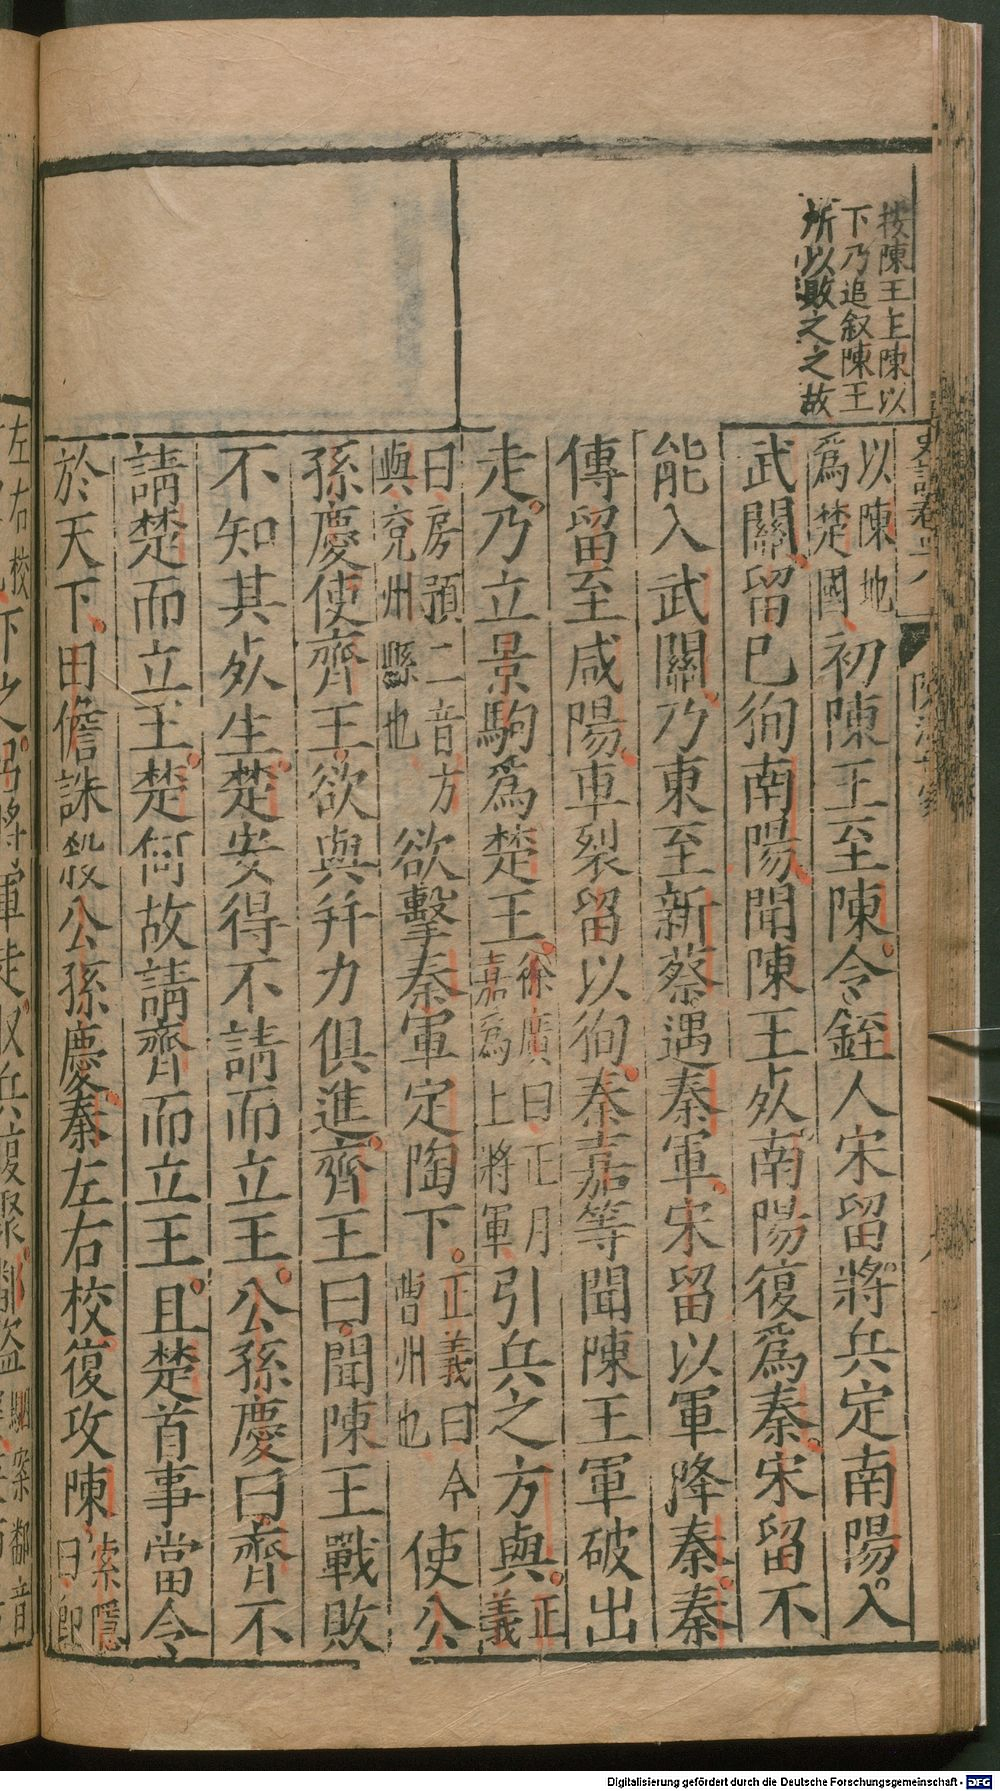 按陳王上陳以
下乃追叙陳王
所以敗之之故
以陳地
爲楚國
初陳王至陳令銍人宋留將兵定南陽入
武關留已徇南陽聞陳王死南陽復爲秦宋留不
能入武關乃東至新蔡遇秦軍宋留以軍降秦秦
傳留至咸陽車裂留以徇秦嘉等聞陳王軍破出
走乃立景駒爲楚王
徐廣曰正月
嘉爲上將軍
引兵之方與
正
義
曰房預二音方
與兗州縣也
欲擊秦軍定陶下
正義曰今
曹州也
使公
孫慶使齊王欲與并力俱進齊王曰聞陳王戰敗
不知其死生楚安得不請而立王公孫慶曰齊不
請楚而立王楚何故請齊而立王且楚首事當令
於天下田儋誅殺公孫慶秦左右校復攻陳
索隱
曰卽
左右校
下之
將軍走
兵復聚
鄱盜
駰案鄱音
Digitalisierung gefördert durch die Deutsche Forschungsgemeinschaft - DFG